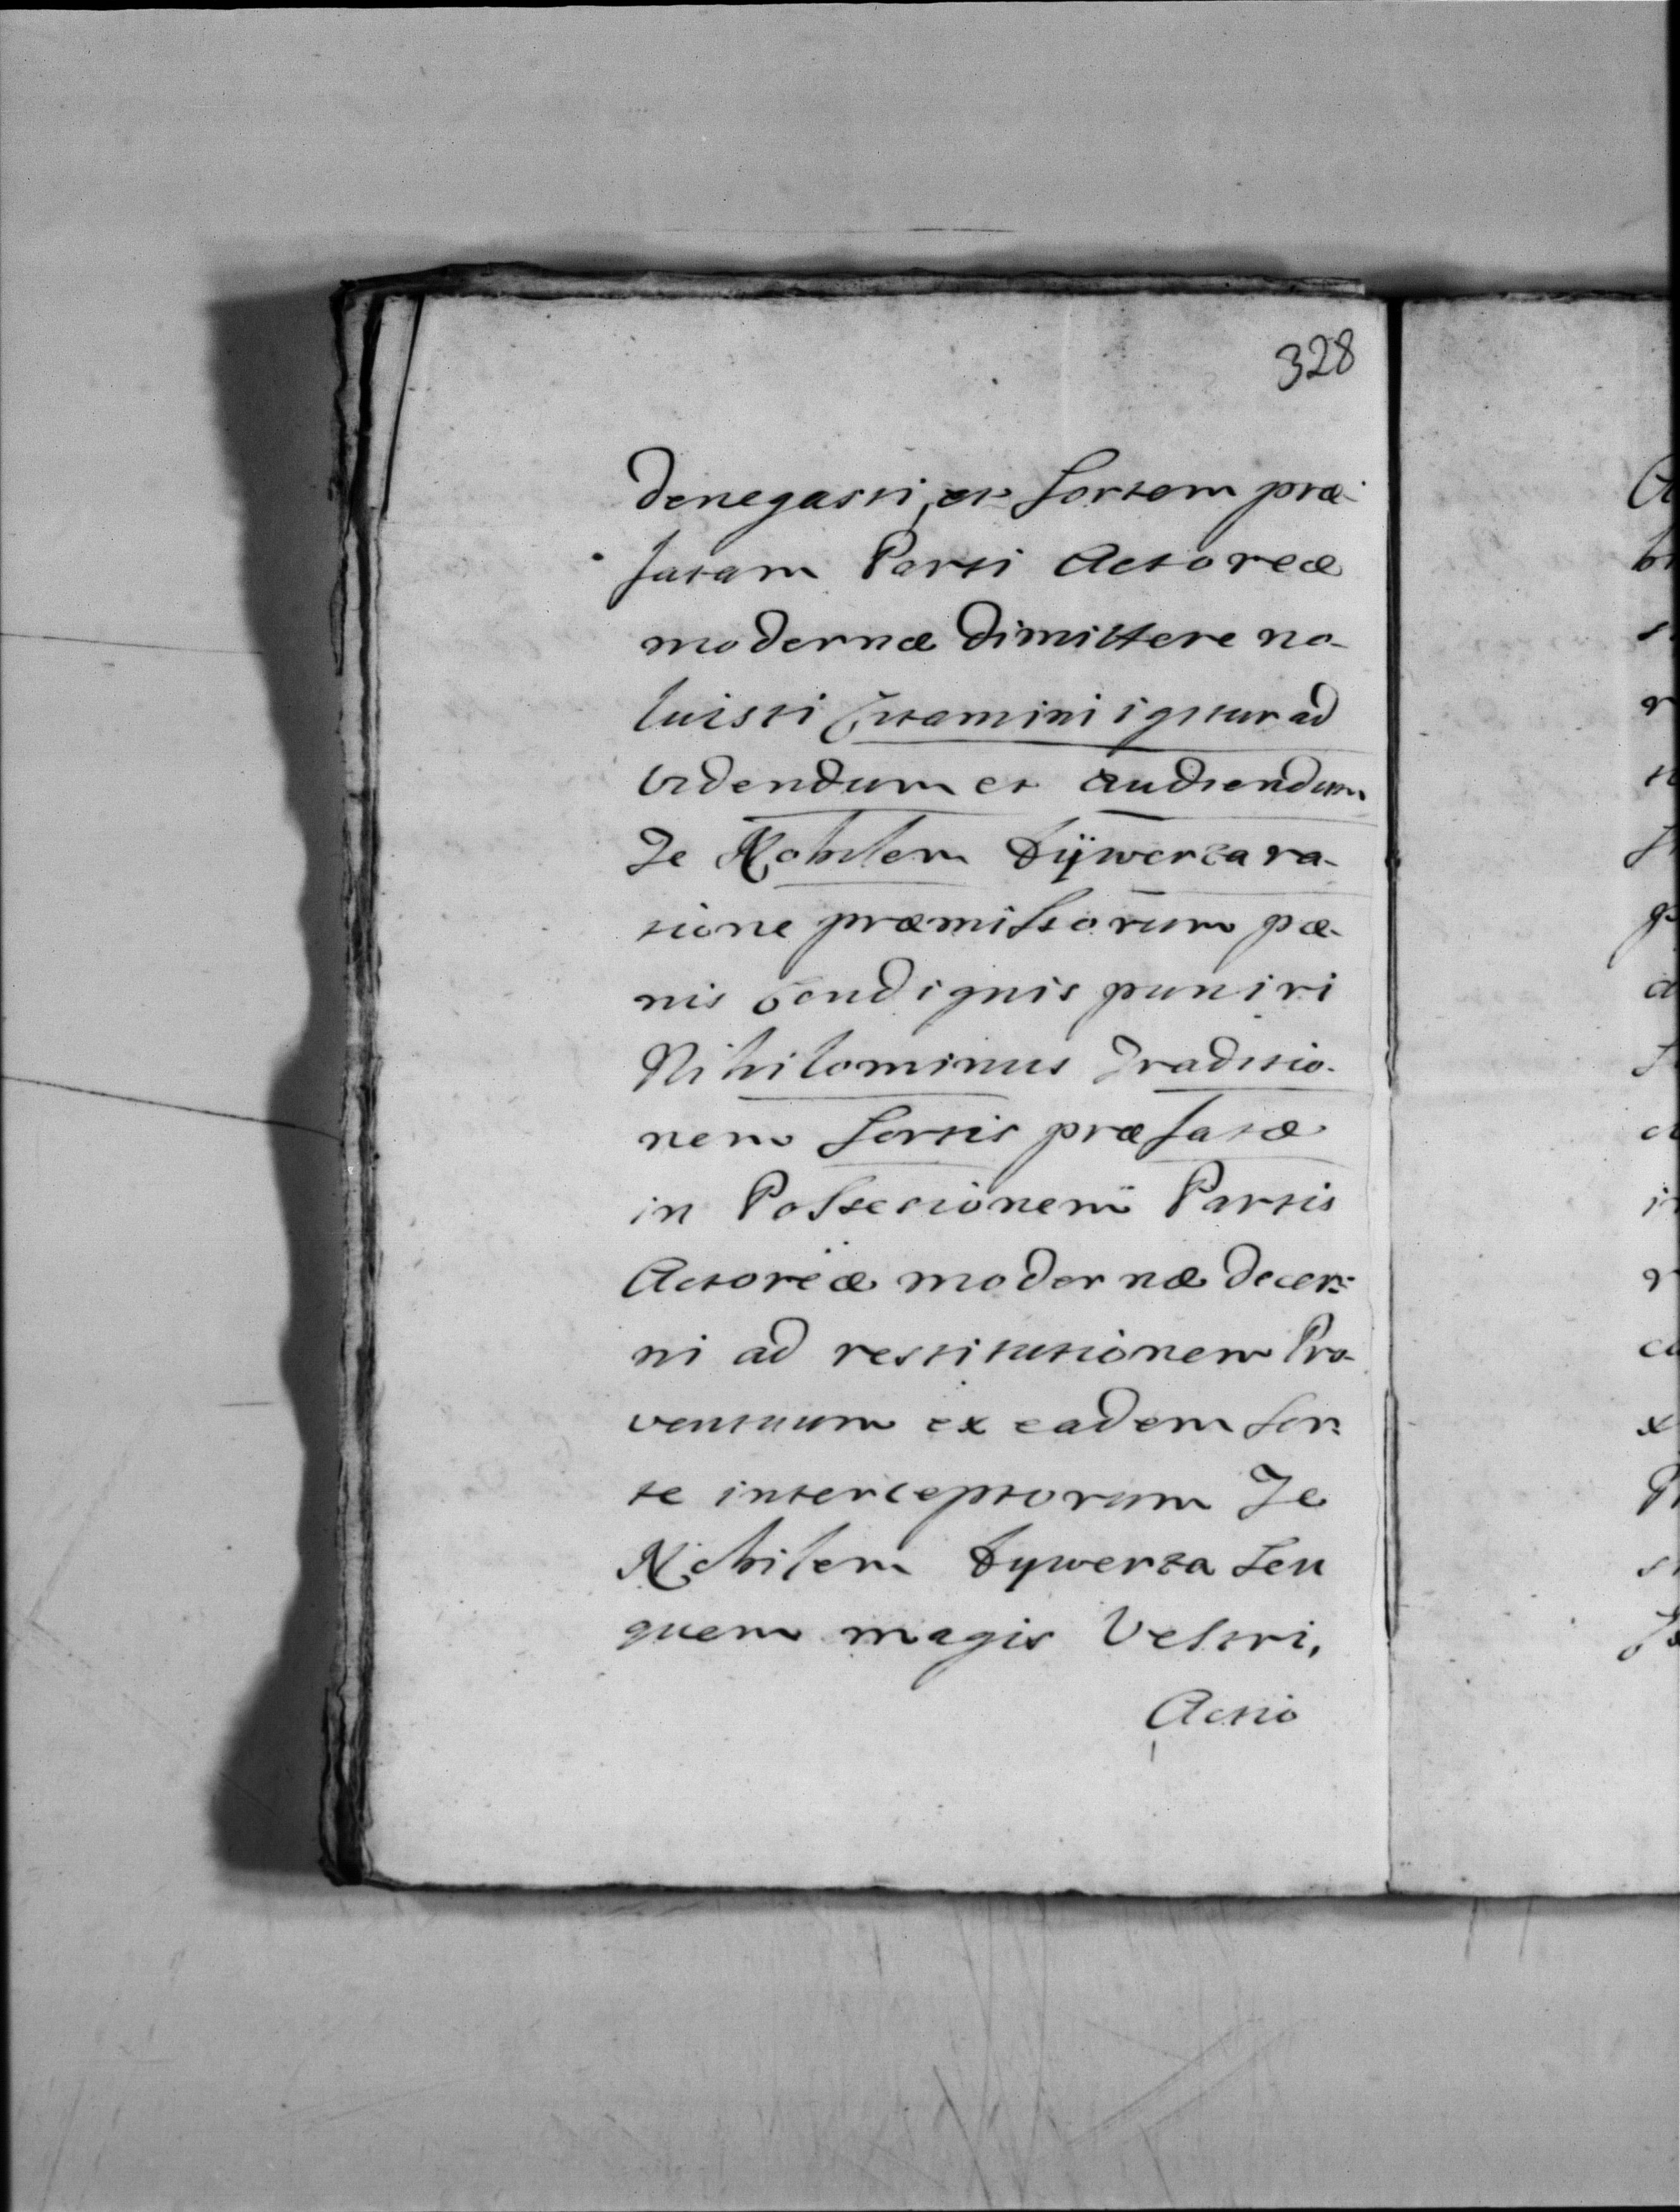 328
denegasti, et sortem præ-
fatam Parti Actoreæ
modernæ dimittere no-
luisti Citamini igitur ad
videndum et audiendum
Te Nobilem Dÿwerza ra-
tione præmissorum pœ-
nis condignis puniri
Nihilominus Traditio-
nem sortis præfatæ
in Possesionem Partis
Actoreæ modernæ decer-
ni ad restitutionem Pro-
ventuum ex eadem sor-
te interceptorum Te
Nobilem Dywerza seu
quem magis Vestri,
Actio